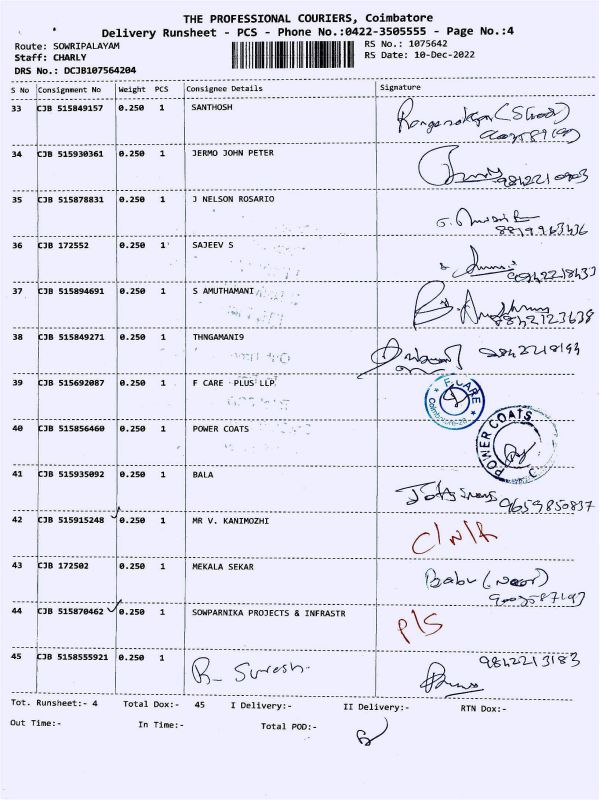 THE PROFESSIONAL COURIERS, Coimbatore
Delivery Runsheet - PCS - Phone No.:0422-3505555 - Page No.:4
Route: SOWRIPALAYAM RS No.: 1075642
Staff: CHARLY RS Date: 10-Dec-2022
DRS No.: DCJB107564204
S No Consignment No Weight PCS Consignee Details Signature
33 CJB 515849157 0.250 1 SANTHOSH
34 CJB 515930361 0.250 1 JERMO JOHN PETER
35 CJB 515878831 0.250 1 J NELSON ROSARIO
8819963436
36 CJB 172552 0.250 1 SAJEEV S
9842218433
37 CJB 515894691 0.250 1 S AMUTHAMANI
9842123638
38 CJB 515849271 0.250 1 THNGAMANI9
39 CJB 515692087 0.250 1 F CARE PLUS LLP
F-CARE
Coimbatore-28
40 CJB 515856460 0.250 1 POWER COATS
POWER COATS
41 CJB 515935092 0.250 1 BALA
9659850837
42 CJB 515915248 0.250 1 MR V. KANIMOZHI
C/N/R
43 CJB 172502 0.250 1 MEKALA SEKAR
Babu
44 CJB 515870462 0.250 1 SOWPARNIKA PROJECTS & INFRASTR
P/S
45 CJB 5158555921 0.250 1 R- Suresh. 9842213183
Tot. Runsheet:- 4 Total Dox:- 45 I Delivery:- II Delivery:- RTN Dox:-
Out Time:- In Time:- Total POD:-